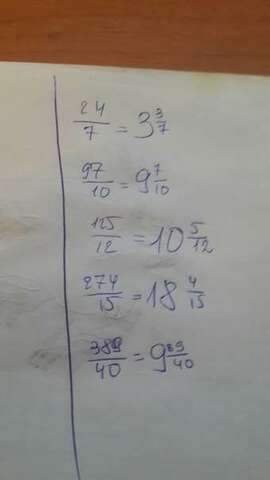 24/7 = 3 3/7
97/10 = 9 7/10
125/12 = 10 5/12
274/15 = 18 4/15
389/40 = 9 89/40